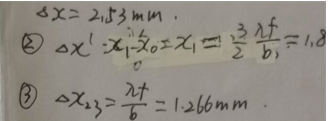 Δx = 2.53 mm.
② Δx' = x₁ - x₀ = x₁ = 3/2 λf/b₁ = 1.8
③ Δx₂₃ = λf/b = 1.266mm.